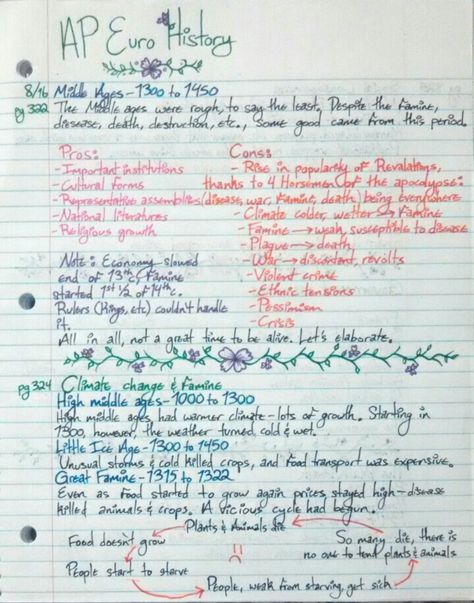 AP Euro History
8/16 Middle Ages - 1300 to 1450
pg 322 The Middle ages were rough, to say the least. Despite the famine,
diesease, death, destruction, etc., some good came from this period.
Pros:
- Important institutions
- Cultural forms
- Representative assemblies
- National literatures
- Religious growth
Cons:
- Rise in popularity of Revalations,
thanks to 4 Horsemen of the apocalypse:
(disease, war, famine, death) being everywhere
- Climate colder, wetter → Famine
- Famine → weak, susceptible to disease
- Plague → death,
- War → discordant, revolts
- Violent crime
- Ethnic tensions
- Pessimism
- Crisis
Note: Economy slowed
end of 13th c, Famine
started 1st 1/2 of 14th c.
Rulers (Kings, etc) couldn't handle
it.
All in all, not a great time to be alive. Let's elaborate.
pg 324 Climate change & Famine
High middle ages - 1000 to 1300
High middle ages, had warmer climate - lots of growth. Starting in
1300, however, the weather turned cold & wet.
Little Ice Age - 1300 to 1450
Unusual storms & cold killed crops, and food transport was expensive.
Great Famine - 1315 to 1322
Even as food started to grow again prices stayed high - disease
killed animals & crops. A vicious cycle had begun.
Plants & Animals die
Food doesn't grow
So many die, there is
no one to tend plants & animals
People start to starve
People, weak from starving, get sick